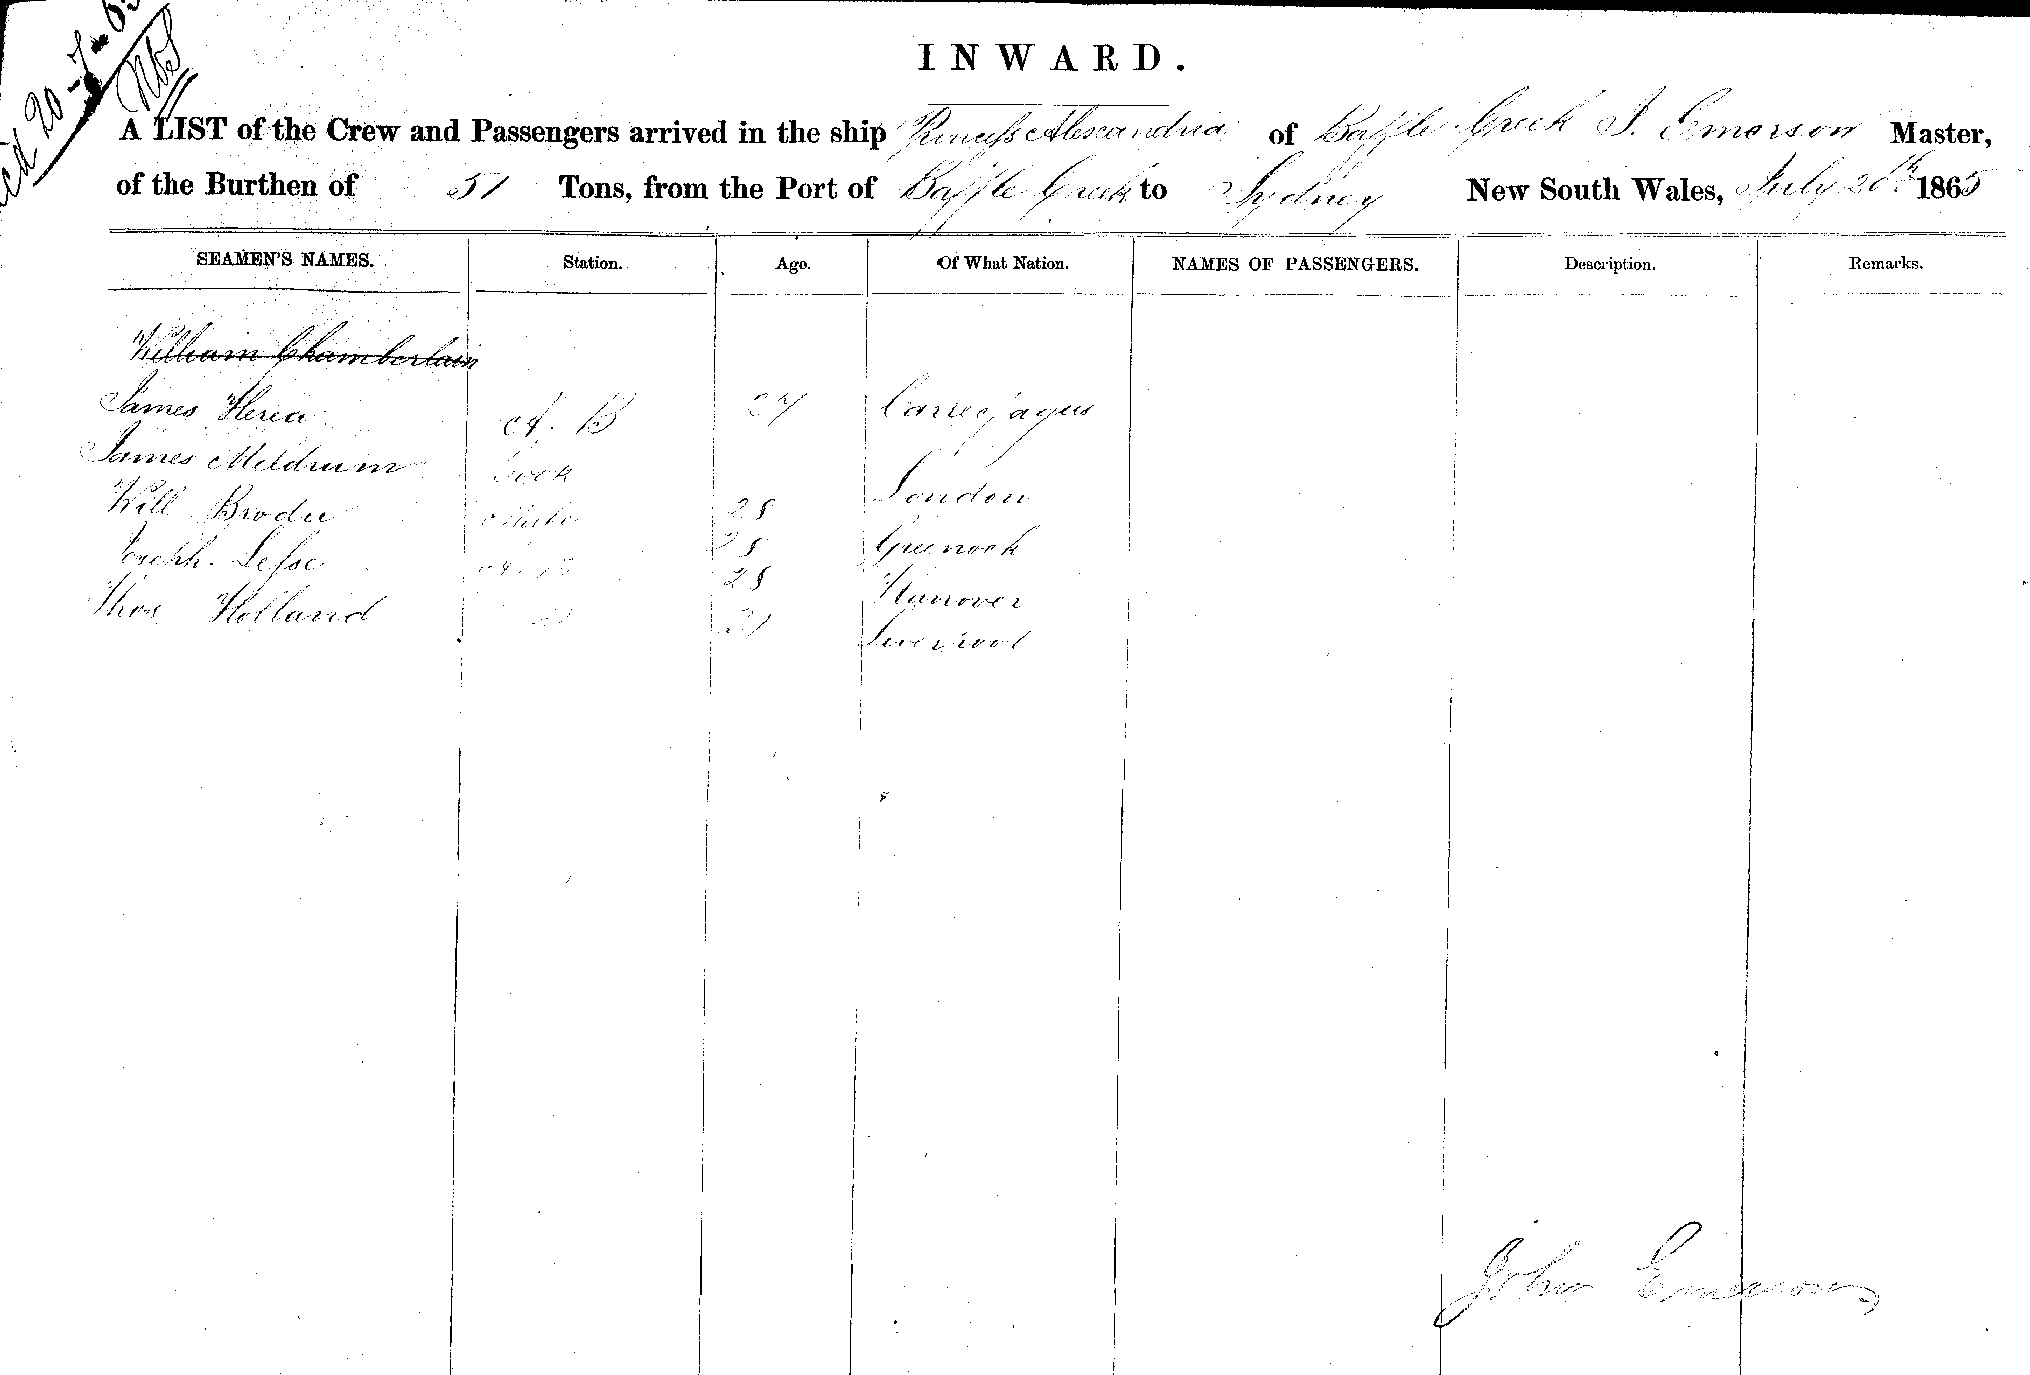 20-7-65
INWARD.
A LIST of the Crew and Passengers arrived in the ship Princess Alexandria of Baffle Creek J. Emerson Master,
of the Burthen of 51 Tons, from the Port of Baffle Creek to Sydney New South Wales, July 20th 1865
SEAMEN'S NAMES. Station. Age. Of What Nation. NAMES OF PASSENGERS. Description. Remarks.
William Chamberlain
James A. B 27
James Meldrum Cook London
Will Brodie 28 Greenock
28 Hanover
Thos Holland 21 Liverpool
John Emerson